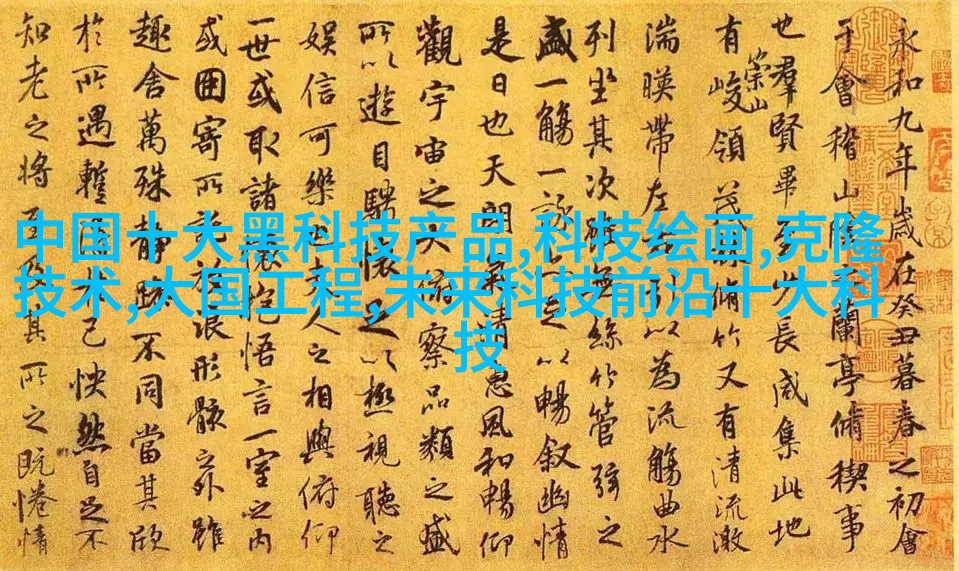 中国十大黑科技产品,科技绘画,克隆
技术,大国工程,未来科技前沿十大科
技
永和九年歲在癸丑暮春之初會
于會稽山陰之蘭亭脩稧事
也羣賢畢至少長咸集此地
有崇山峻領茂林脩竹又有清流激
湍暎帶左右引以為流觴曲水
列坐其次雖無絲竹管弦之
盛一觴一詠亦足以暢叙幽情
是日也天朗氣清惠風和暢仰
觀宇宙之大俯察品類之盛
所以遊目騁懷足以極視聽之
娛信可樂也夫人之相與俯仰
一世或取諸懷抱悟言一室之內
或因寄所託放浪形骸之外雖
趣舍萬殊靜躁不同當其欣
於所遇蹔得於己怏然自足不
知老之將至及其所之既惓情